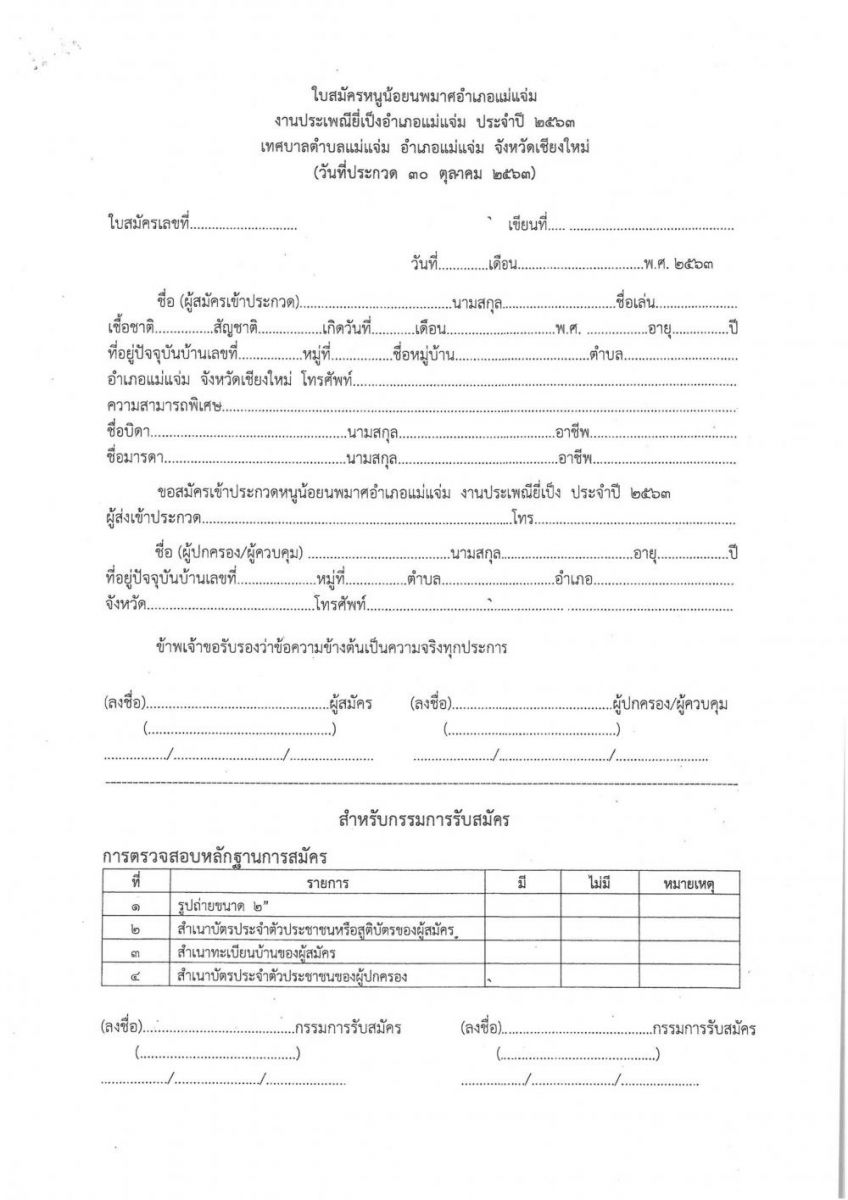 ใบสมัครหนูน้อยนพมาศอำเภอแม่แจ่ม
งานประเพณียี่เป็งอำเภอแม่แจ่ม ประจำปี ๒๕๖๓
เทศบาลตำบลแม่แจ่ม อำเภอแม่แจ่ม จังหวัดเชียงใหม่
(วันที่ประกวด ๓๐ ตุลาคม ๒๕๖๓)
ใบสมัครเลขที่.............................. เขียนที่..... .............................................
วันที่..............เดือน...................................พ.ศ. ๒๕๖๓
ชื่อ (ผู้สมัครเข้าประกวด)..........................................นามสกุล...............................ชื่อเล่น.......................
เชื้อชาติ................สัญชาติ..................เกิดวันที่............เดือน..............................พ.ศ. .................อายุ................ปี
ที่อยู่ปัจจุบันบ้านเลขที่..................หมู่ที่.................ชื่อหมู่บ้าน......................................ตำบล................................
อำเภอแม่แจ่ม จังหวัดเชียงใหม่ โทรศัพท์..........................................................................................................
ความสามารถพิเศษ...............................................................................................................................................
ชื่อบิดา.......................................................นามสกุล...........................................อาชีพ.........................................
ชื่อมารดา...................................................นามสกุล............................................อาชีพ........................................
ขอสมัครเข้าประกวดหนูน้อยนพมาศอำเภอแม่แจ่ม งานประเพณียี่เป็ง ประจำปี ๒๕๖๓
ผู้ส่งเข้าประกวด......................................................................................โทร........................................................
ชื่อ (ผู้ปกครอง/ผู้ควบคุม) .......................................นามสกุล.....................................อายุ....................ปี
ที่อยู่ปัจจุบันบ้านเลขที่......................หมู่ที่.................ตำบล................................อำเภอ.......................................
จังหวัด...............................................โทรศัพท์......................................................................................................
ข้าพเจ้าขอรับรองว่าข้อความข้างต้นเป็นความจริงทุกประการ
(ลงชื่อ)...................................................ผู้สมัคร (ลงชื่อ).............................................ผู้ปกครอง/ผู้ควบคุม
(...................................................) (...............................................)
................../.............................../....................... ....................../.............................../..........................
สำหรับกรรมการรับสมัคร
การตรวจสอบหลักฐานการสมัคร
ที่ รายการ มี ไม่มี หมายเหตุ
๑ รูปถ่ายขนาด ๒"
๒ สำเนาบัตรประจำตัวประชาชนหรือสูติบัตรของผู้สมัคร
๓ สำเนาทะเบียนบ้านของผู้สมัคร
๔ สำเนาบัตรประจำตัวประชาชนของผู้ปกครอง
(ลงชื่อ)...........................................กรรมการรับสมัคร (ลงชื่อ)..........................................กรรมการรับสมัคร
(...........................................) (...........................................)
.................../......................../...................... ................../......................./......................